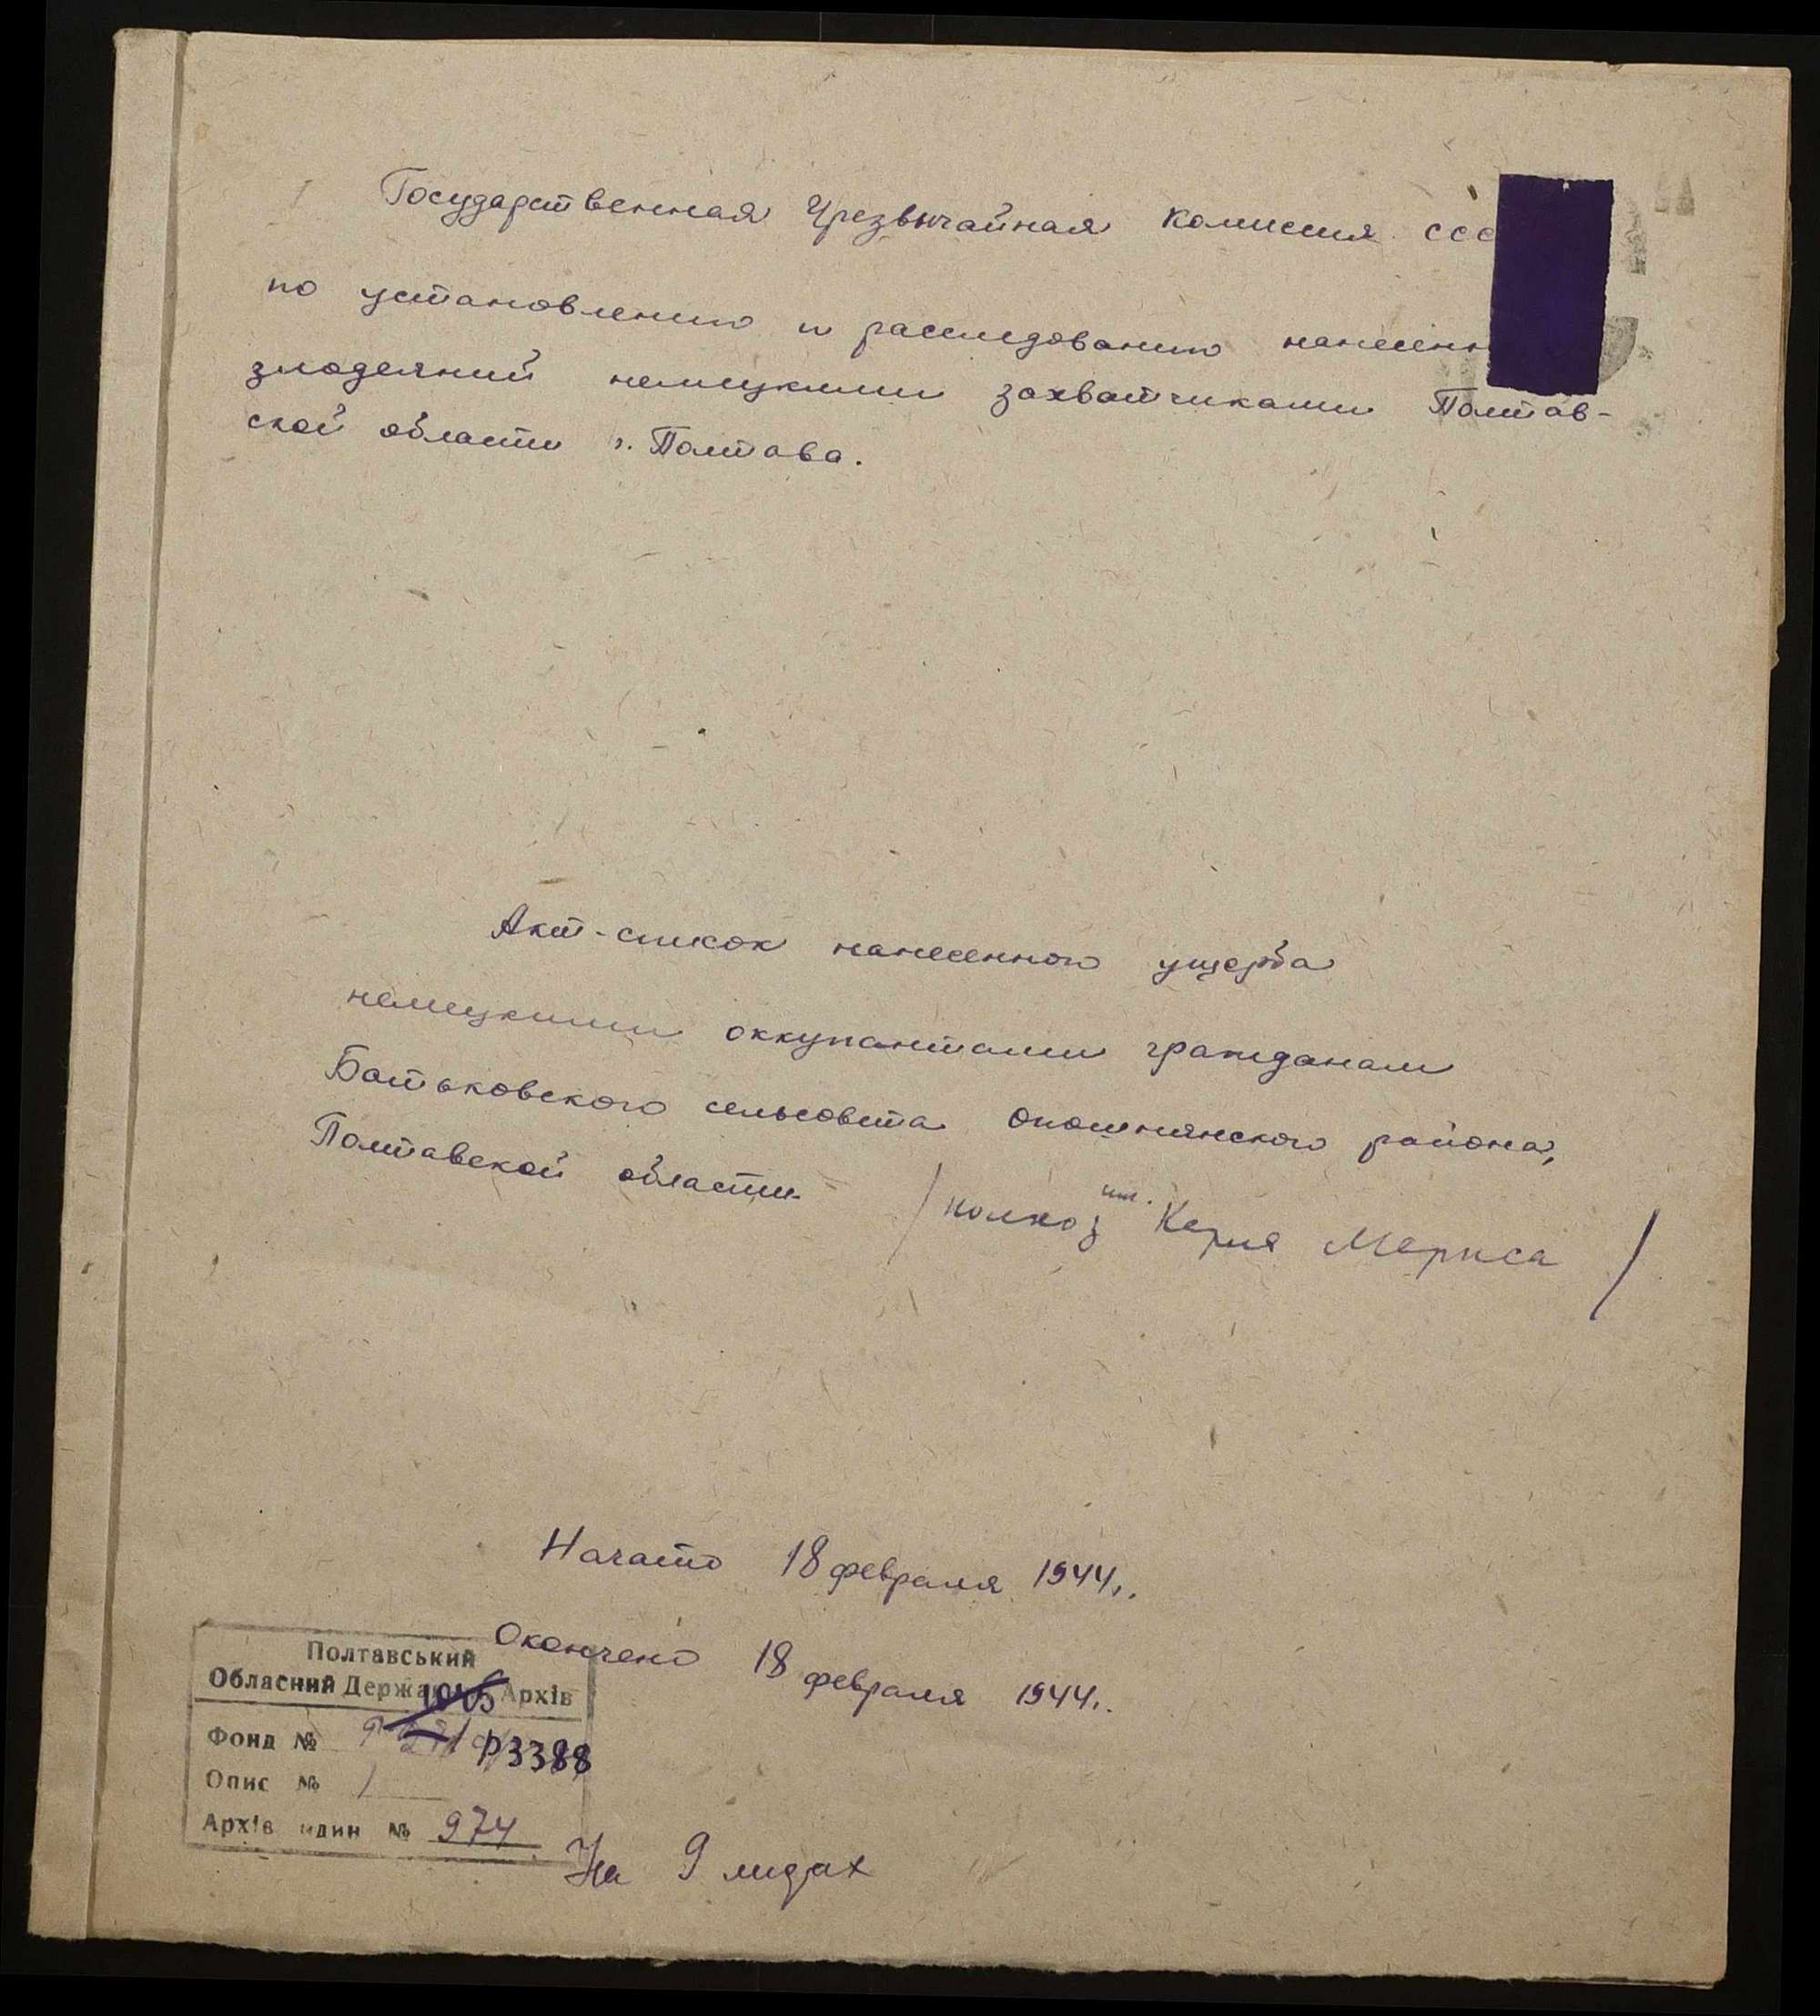 Государственная Чрезвычайная Комиссия ССС
по установлению и расследованию нанесенн
злодеяний немецкими захватчиками Полтав-
ской области г. Полтава.
Акт-список нанесенного ущерба
немецкими оккупантами гражданам
Батьковского сельсовета Опошнянского района,
Полтавской области
/колхоз им. Карла Маркса/
Начато 18 февраля 1944г.
Окончено 18 февраля 1944г.
Полтавський
Обласний Держ Архів
Фонд № Р3388
Опис № 1
Архів один № 974
На 9 лидах